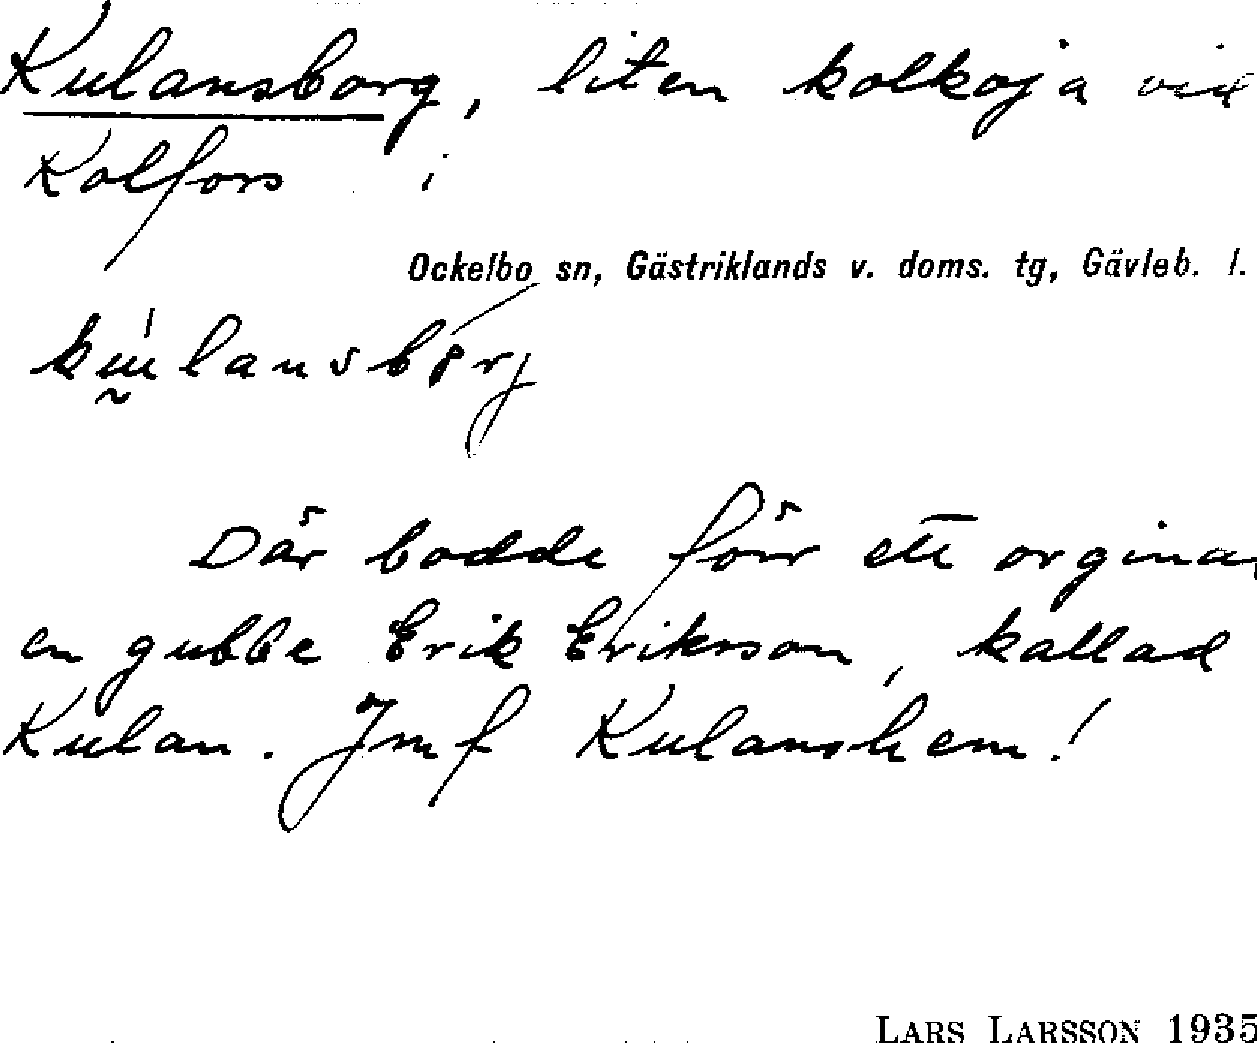 Kulansborg, liten kolkoja vid
Kolfors i
Ockelbo sn, Gästriklands v. doms. tg, Gävleb. l.
Där bodde förr ett orgina
en gubbe Erik Eriksson, kallad
Kulan. Jmf Kulanshem!
LARS LARSSON 1935